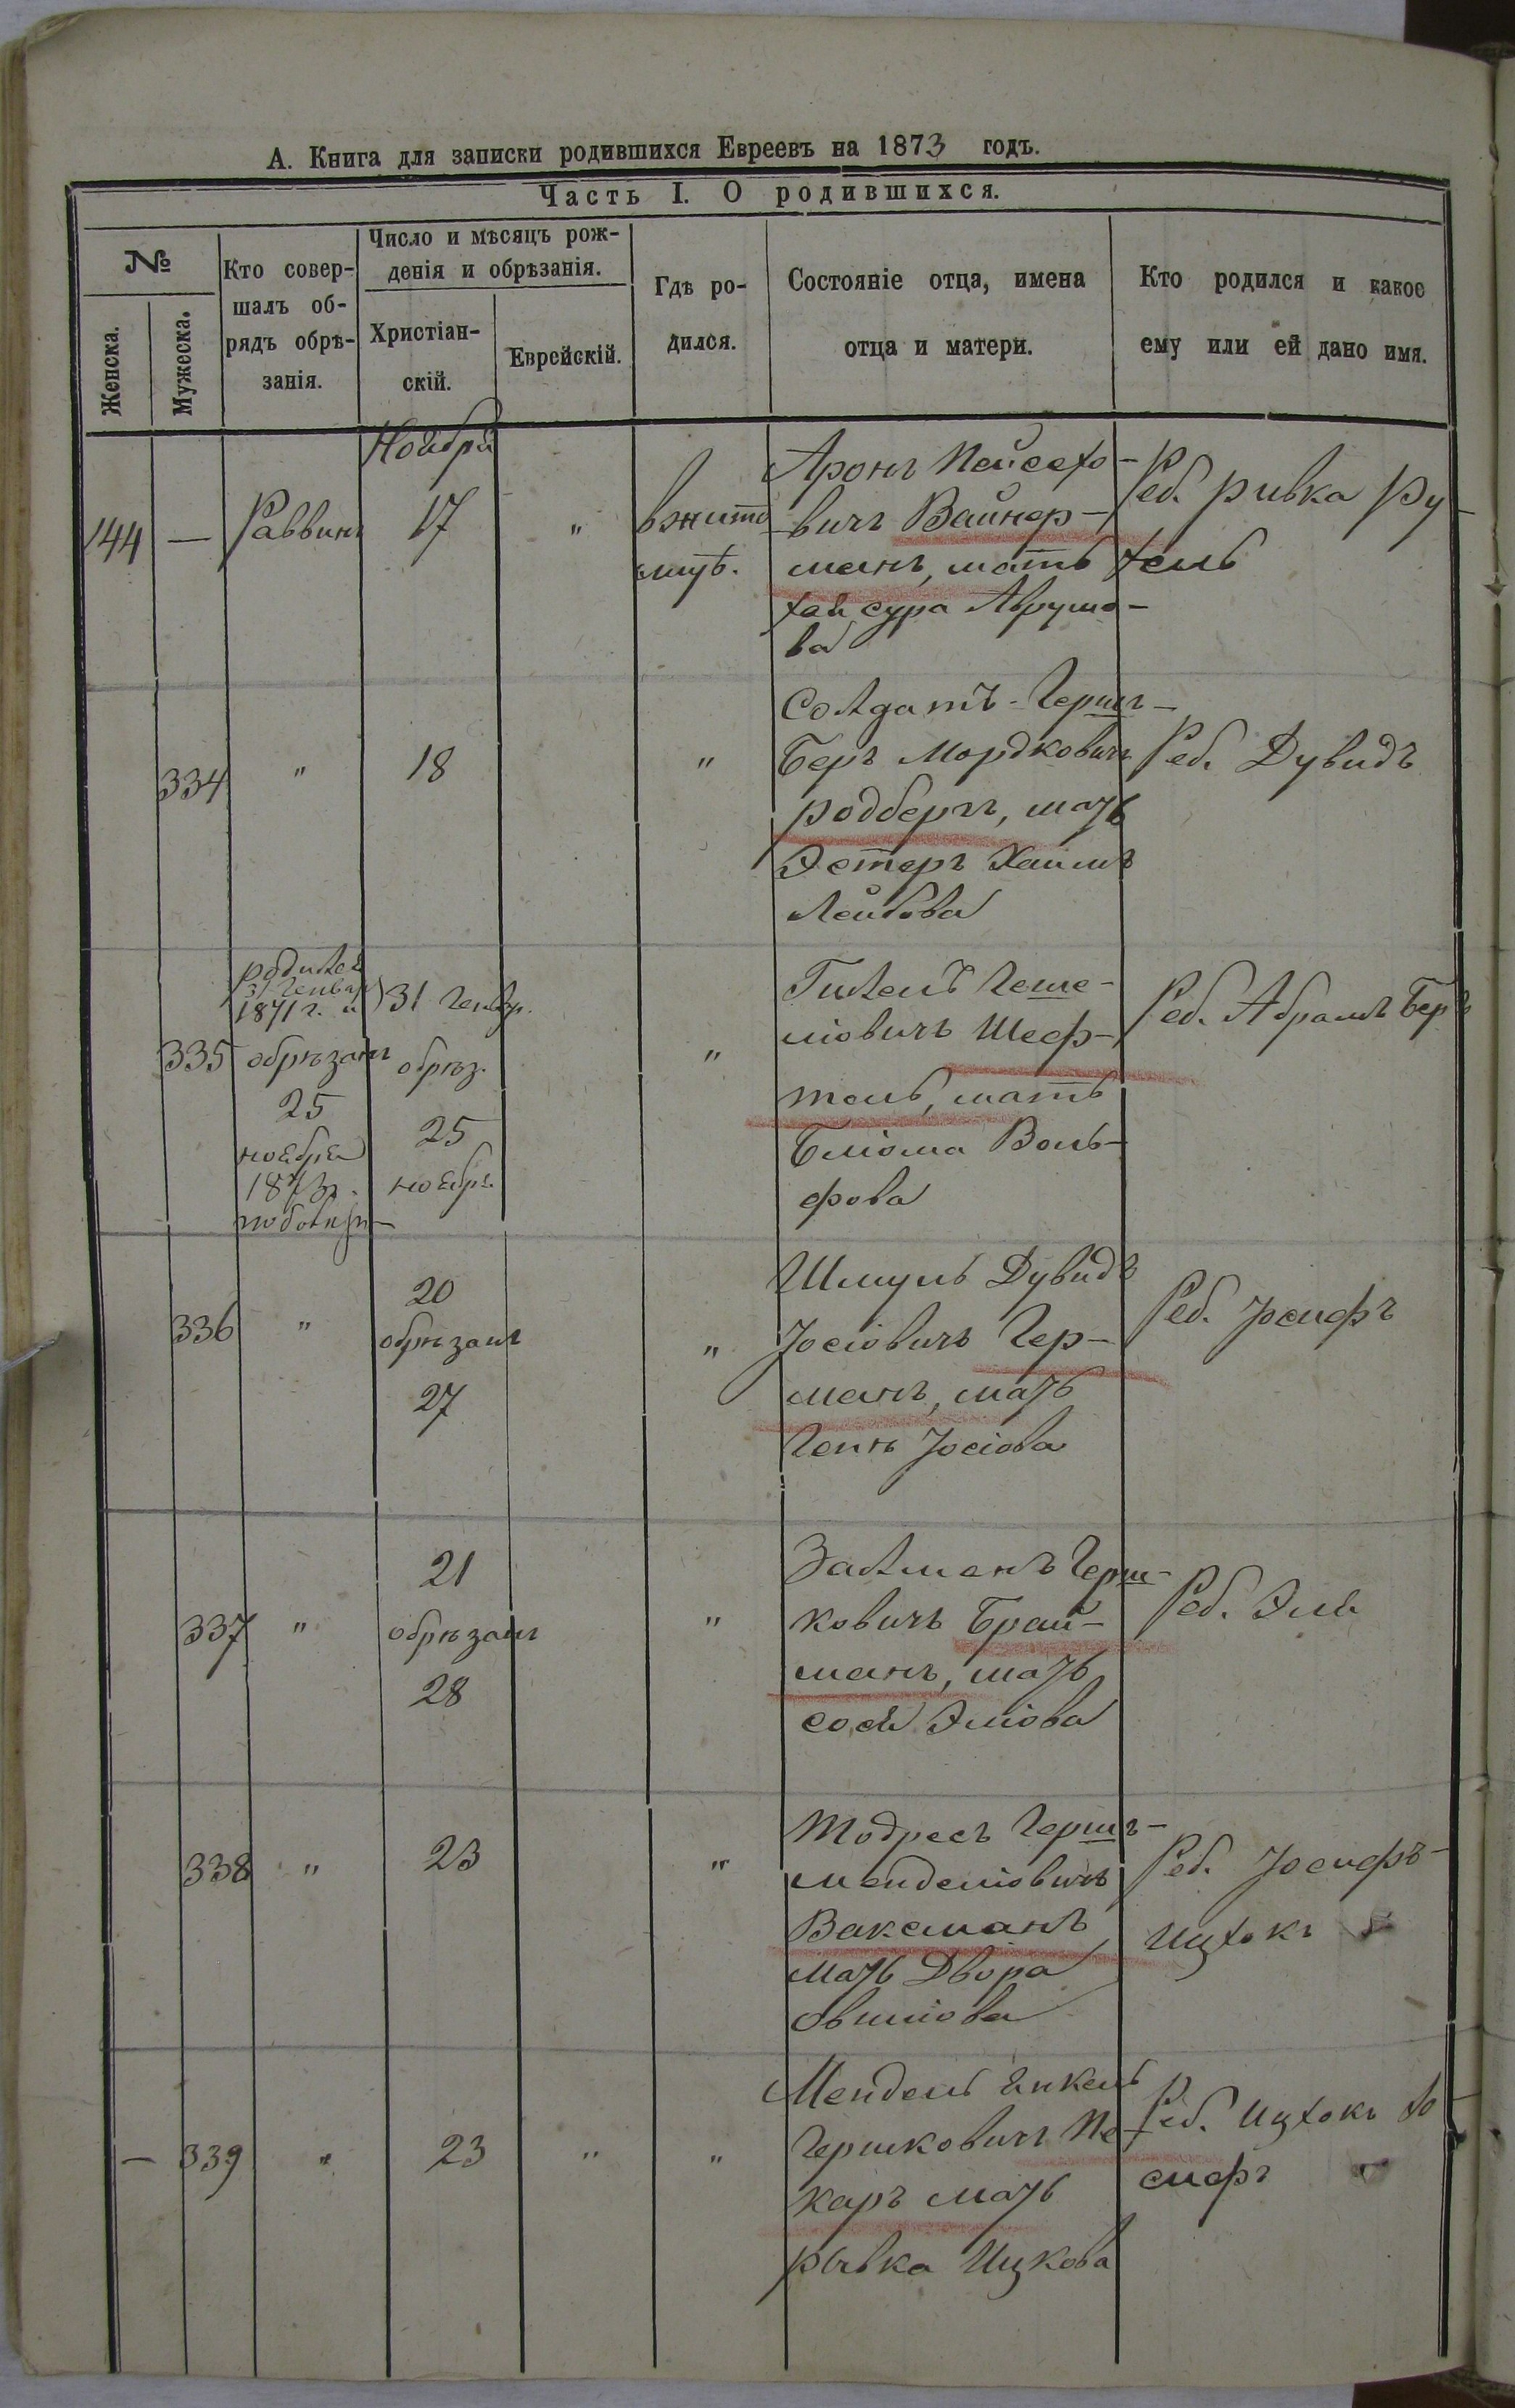 А. Книга для записки родившихся Евреевъ на 1873 годъ.
Часть I. О родившихся.
№
Женска.
Мужеска.
Кто совер-
шалъ об-
рядъ обрѣ-
занія.
Число и мѣсяцъ рож-
денія и обрѣзанія.
Христіан-
скій.
Еврейскій.
Гдѣ ро-
дился.
Состояніе отца, имена
отца и матери.
Кто родился и какое
ему или ей дано имя.
Ноября
144 — Раввинъ 17 "
вжито
мірѣ.
Аронъ Пейсахо-
вичъ Вайнер-
манъ, мать
хая сура Аврумо-
ва
Реб. ривка Ру-
хель
334 " 18 "
Солдатъ Гершъ-
Беръ Мордковичъ
родбергъ, мать
Эстеръ Хаимъ
Лейбова
Реб. Дувидъ
335
родился
31 Генвар
1871 г. и
обрѣзанъ
25
ноября
1873 г.
31 Генвар.
обрѣз.
25
ноябр.
"
Гилель Геше-
ліовичъ Шеф-
тель, мать
Бліома Воль-
фова
Реб. Абрамъ Беръ
336 "
20
обрѣзанъ
27
"
Шмуль Дувидъ
Іосіовичъ Гер-
манъ, мать
Геня Іосіова
Реб. Іосифъ
337 "
21
обрѣзанъ
28
"
Залманъ Герш-
ковичъ Брай-
манъ, мать
сося Эліова
Реб. Эля
338 " 23 "
Тодресъ Гершъ-
менделіовичъ
Ваксманъ
мать Двора
Овшіова
Реб. Іосифъ-
Ицхокъ
— 339 " 23 " "
Мендель Янкель
Гершковичъ Пе-
каръ мать
рывка Ицкова
Реб. Ицхокъ Іо-
сифъ